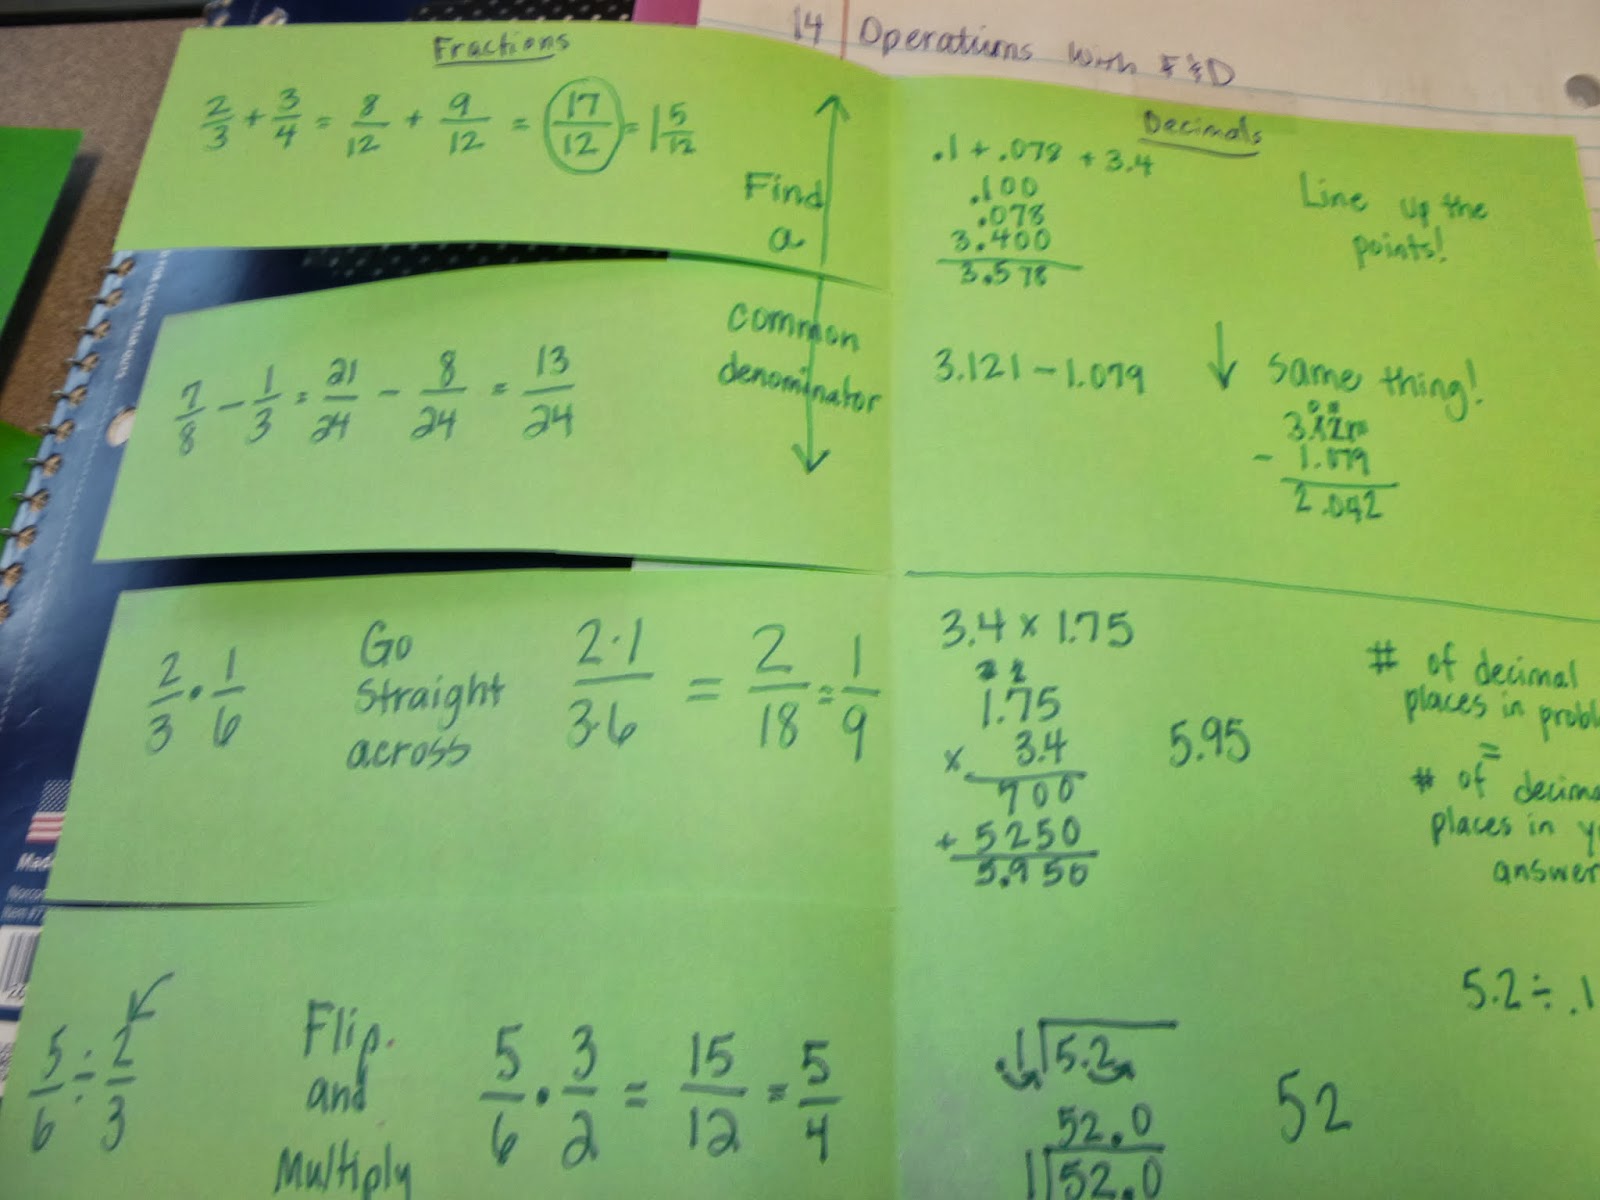 14 Operations with F & D
Fractions
2/3 + 3/4 = 8/12 + 9/12 = 17/12 = 1 5/12
Find
a
common
denominator
7/8 - 1/3 = 21/24 - 8/24 = 13/24
2/3 · 1/6
Go
Straight
across
2·1/3·6 = 2/18 = 1/9
5/6 ÷ 2/3
Flip
and
Multiply
5/6 · 3/2 = 15/12 = 5/4
Decimals
.1 + .078 + 3.4
.100
.078
3.400
3.578
Line up the
points!
3.121 - 1.079
same thing!
- 1.079
2.042
3.4 x 1.75
1.75
x 3.4
700
+ 5250
5.950
5.95
# of decimal
places in
=
# of
places in
answer
5.2 ÷ .1
.1 5.2
52.0
1 52.0
52
Made